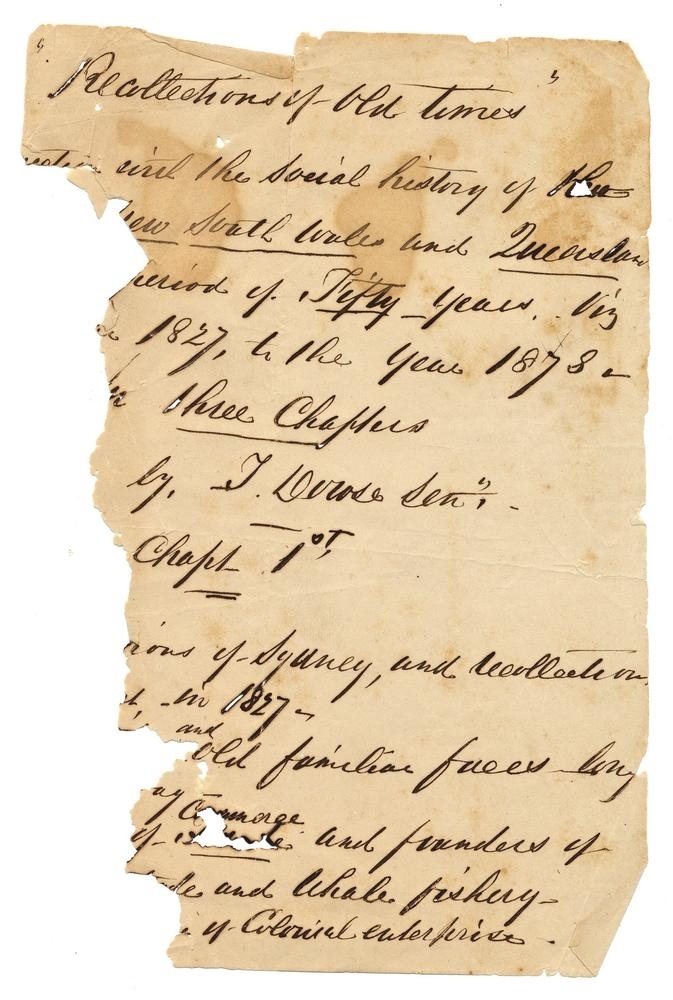 " Recollections of Old times "
civil the social history of the
New South Wales and Queensland
period of Fifty years. Viz
1827, to the year 1878 -
three Chapters
by, T. Dowse Senr. -
Chapt 1st
of Sydney, and recollection
in 1827 -
and
Old familiar faces long
Commerce
of and founders of
and Whale fishery -
of Colonial enterprise .